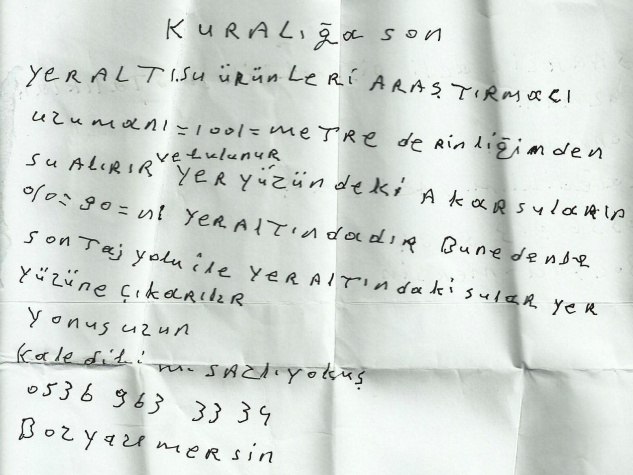 KURALIğa son
YERALTISU ÜRÜNLERİ ARAŞTIRMACI
uzumanı=1001=meTRe deRinliğimden
SU ALIRIR veBulunur YER yüzündeki AkaRsuların
%=90=ni YERAltındadıR Bunedenle
sonTaj yolu ile YERAlTındaki sular yer
yüzüne çıkarılır
yonus uzun
Kaledibi m. SAZlıyokuş
0536 963 33 34
Bozyazı mersin